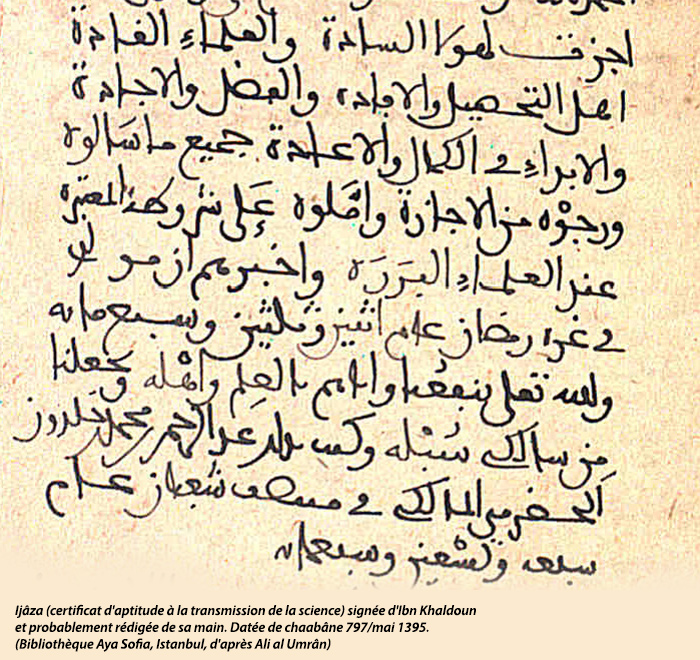 اجزت لهولا السادة والعلماء القادة
اهل التحصيل والافاده والفضل والاجادة
والابراء في الكمال والاعادة جميع ما سالوه
ورجوه من الاجازة وامّلوه على شروطه المعتبرة
عند العلماء البررة واخبرهم ان مولدي
في غرة رمضان عام اثنين وثلثين وسبع مايه
والله تعلى ينفعنا واياهم بالعلم واهله ويجعلنا
من سالكي سبله وكتب عبد الرحمن بن محمد بن خلدون
الحضرمي المالكي في منتصف شعبان عام
سبعه وتسعين وسبعمائه
Ijâza (certificat d'aptitude à la transmission de la science) signée d'Ibn Khaldoun
et probablement rédigée de sa main. Datée de chaabâne 797/mai 1395.
(Bibliothèque Aya Sofia, Istanbul, d'après Ali al Umrân)